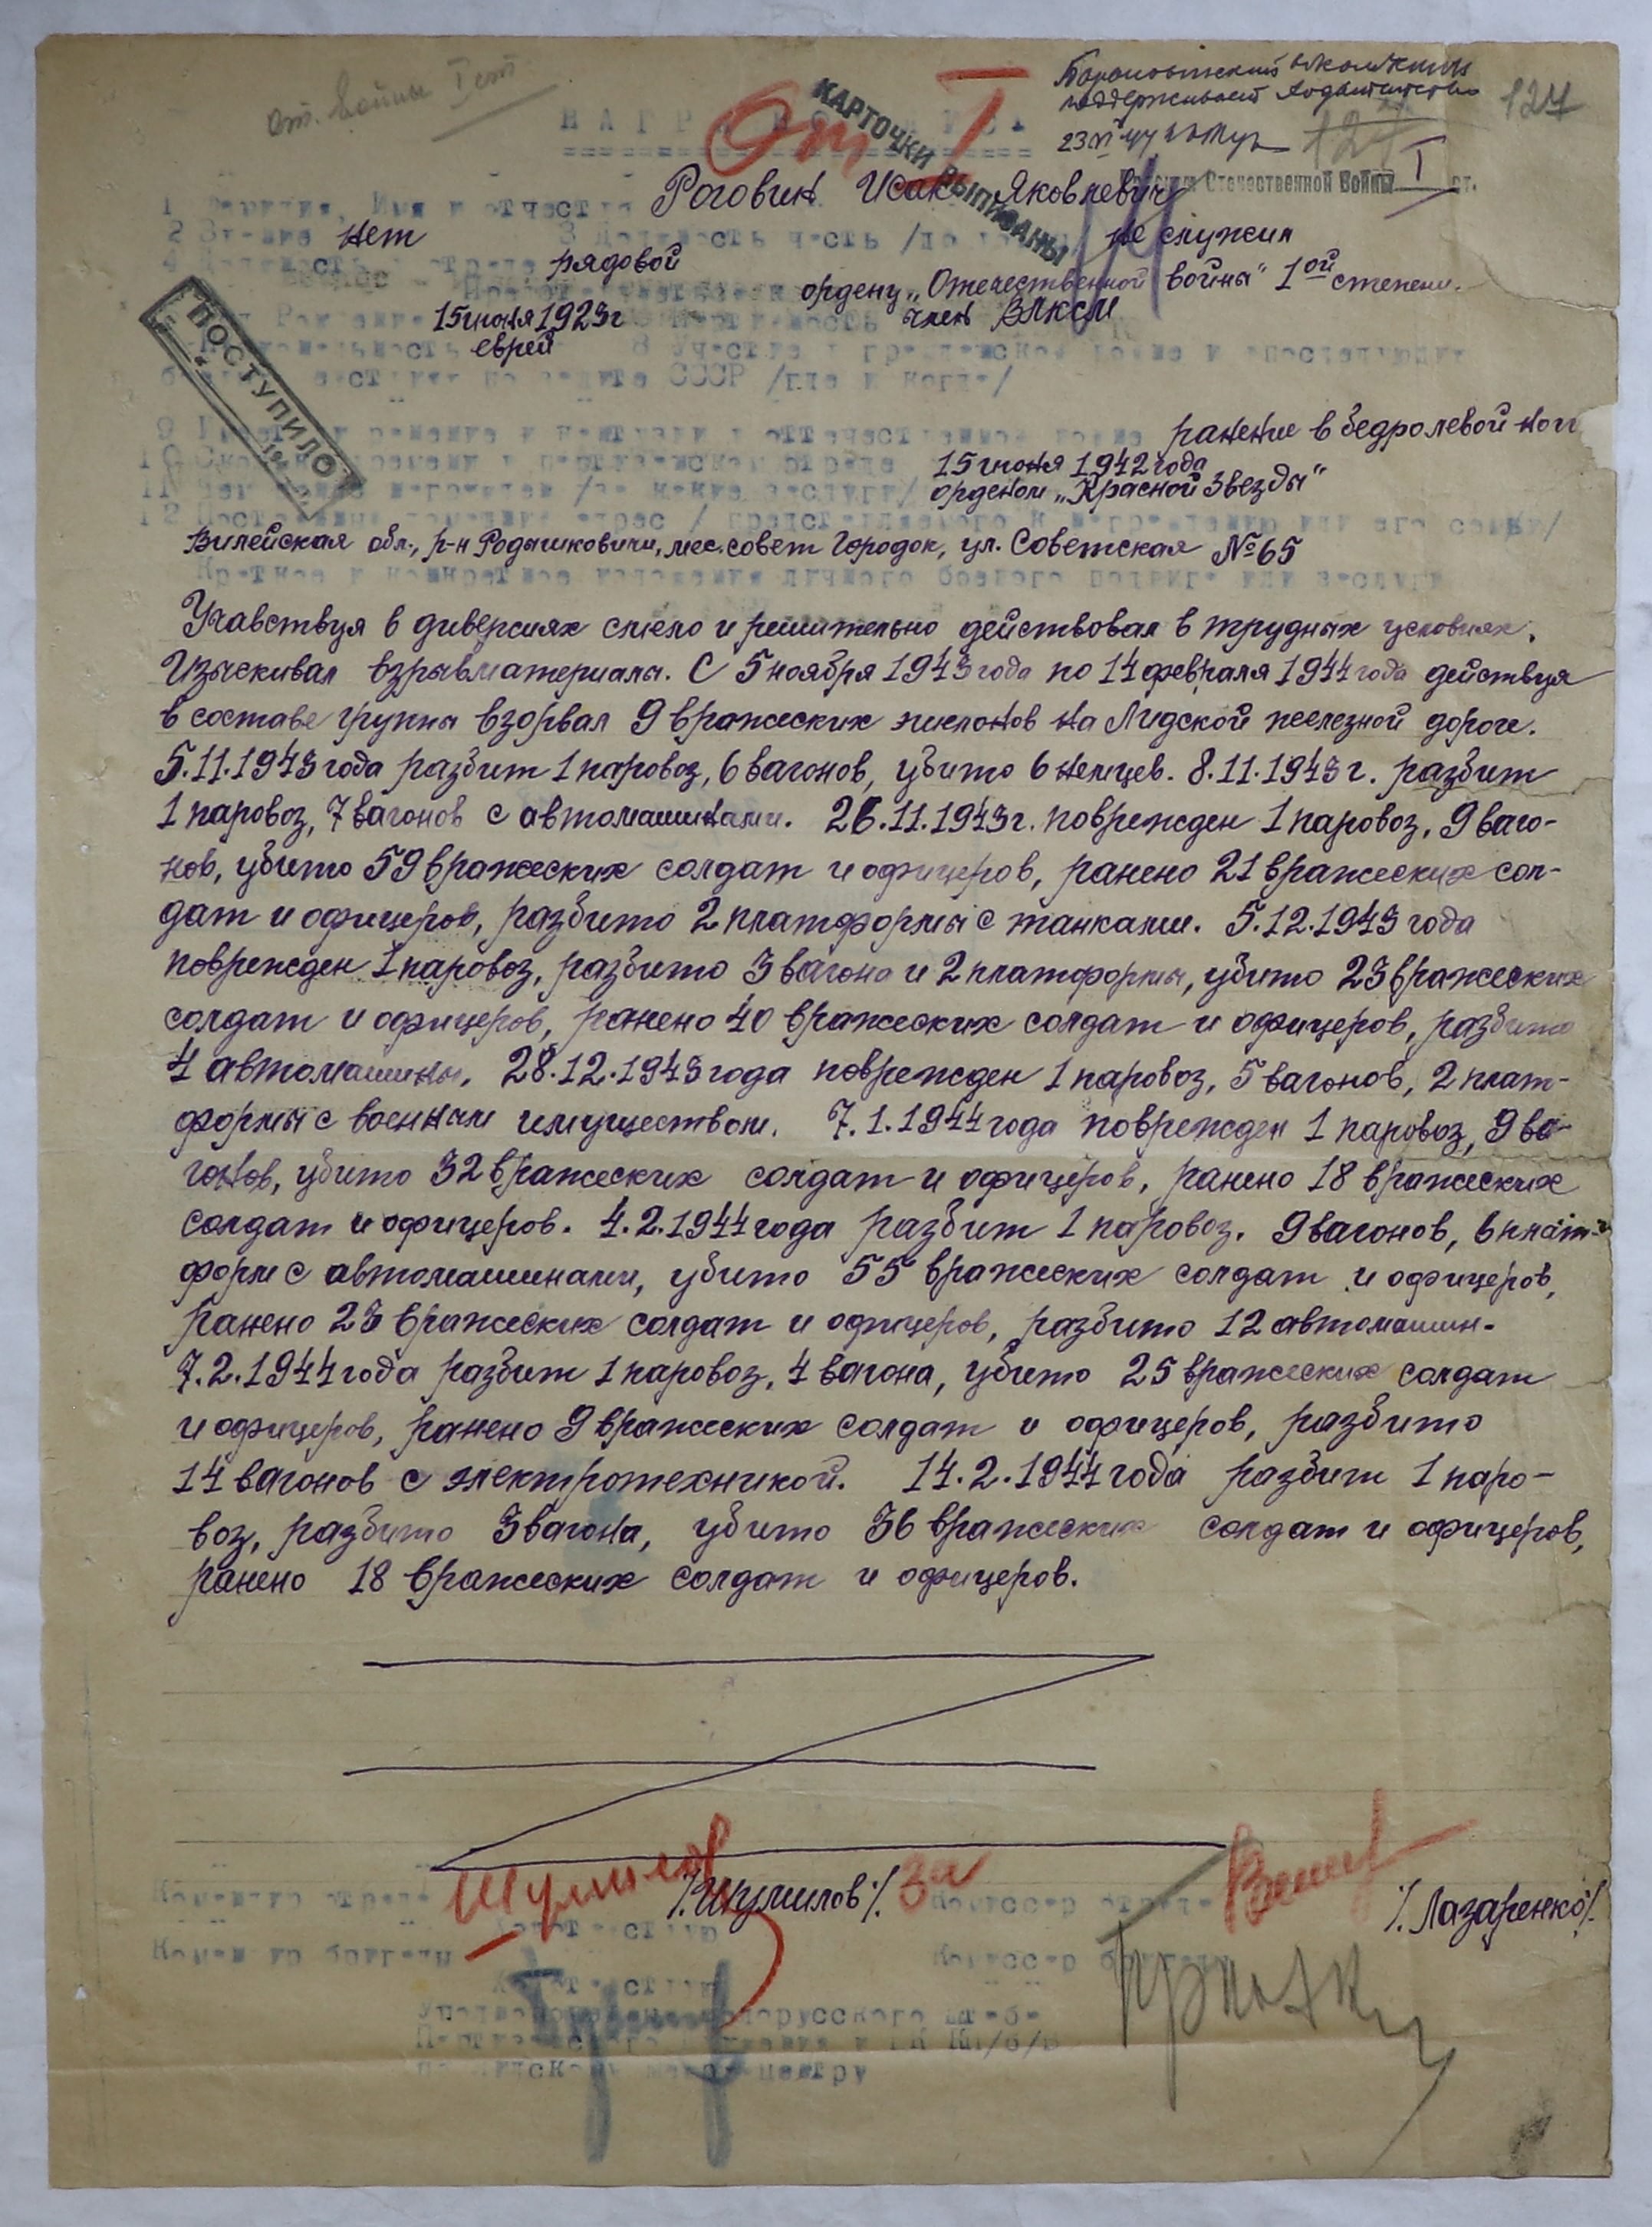 От. войны I ст
Барановичский
поддерживает ходатайство
23 VI 44
127
127
НАГРАДНОЙ ЛИСТ
От I
КАРТОЧКИ ВЫПИСАНЫ
Отечественной Войны I ст.
1 Фамилия, Имя и отчество Роговин Исак Яковлевич
2 Звание нет 3 Должность часть /до не служил
4 рядовой
ордену „Отечественной войны" 1ой степени.
15 июня 1923 г член ВЛКСМ
еврей 8 Участие в гражданской войне и последующих
боевых действиях по защите СССР /где и когда/
ПОСТУПИЛО
9 Имеет ли ранения и контузии в отечественной войне ранение в бедро левой ноги
10 С какого времени в партизанском отряде 15 июня 1942 года
11 Чем ранее награжден /за какие заслуги/ орденом „Красной Звезды"
12 Постоянный домашний адрес /представляемого к награждению или его семьи/
Вилейская обл., р-н Радашковичи, мес. совет Городок, ул. Советская №65
Краткое и конкретное изложение личного боевого подвига или заслуги
Учавствуя в диверсиях смело и решительно действовал в трудных условиях.
Изыскивал взрывматериалы. С 5 ноября 1943 года по 14 февраля 1944 года действуя
в составе группы взорвал 9 вражеских эшелонов на Лидской железной дороге.
5.11.1943 года разбит 1 паровоз, 6 вагонов, убито 6 немцев. 8.11.1943 г. разбит
1 паровоз, 7 вагонов с автомашинами. 26.11.1943 г. поврежден 1 паровоз, 9 ваго-
нов, убито 59 вражеских солдат и офицеров, ранено 21 вражеских сол-
дат и офицеров, разбито 2 платформы с танками. 5.12.1943 года
поврежден 1 паровоз, разбито 3 вагона и 2 платформы, убито 23 вражеских
солдат и офицеров, ранено 40 вражеских солдат и офицеров, разбито
4 автомашины. 28.12.1943 года поврежден 1 паровоз, 5 вагонов, 2 плат-
формы с военным имуществом. 7.1.1944 года поврежден 1 паровоз, 9 ва-
гонов, убито 32 вражеских солдат и офицеров, ранено 18 вражеских
солдат и офицеров. 4.2.1944 года разбит 1 паровоз. 9 вагонов, 6 плат-
форм с автомашинами, убито 55 вражеских солдат и офицеров,
ранено 23 вражеских солдат и офицеров, разбито 12 автомашин.
7.2.1944 года разбит 1 паровоз, 4 вагона, убито 25 вражеских солдат
и офицеров, ранено 9 вражеских солдат и офицеров, разбито
14 вагонов с электротехникой. 14.2.1944 года разбит 1 паро-
воз, разбито 3 вагона, убито 36 вражеских солдат и офицеров,
ранено 18 вражеских солдат и офицеров.
Командир отряда Шумилов /.Шумилов/. За Комиссар отряда /.Лазаренко/.
Командир бригады Комиссар бригады
Уполномоченный Белорусского штаба
Партизанского движения и ЦК КП/б/Б
по Лидскому межрайцентру